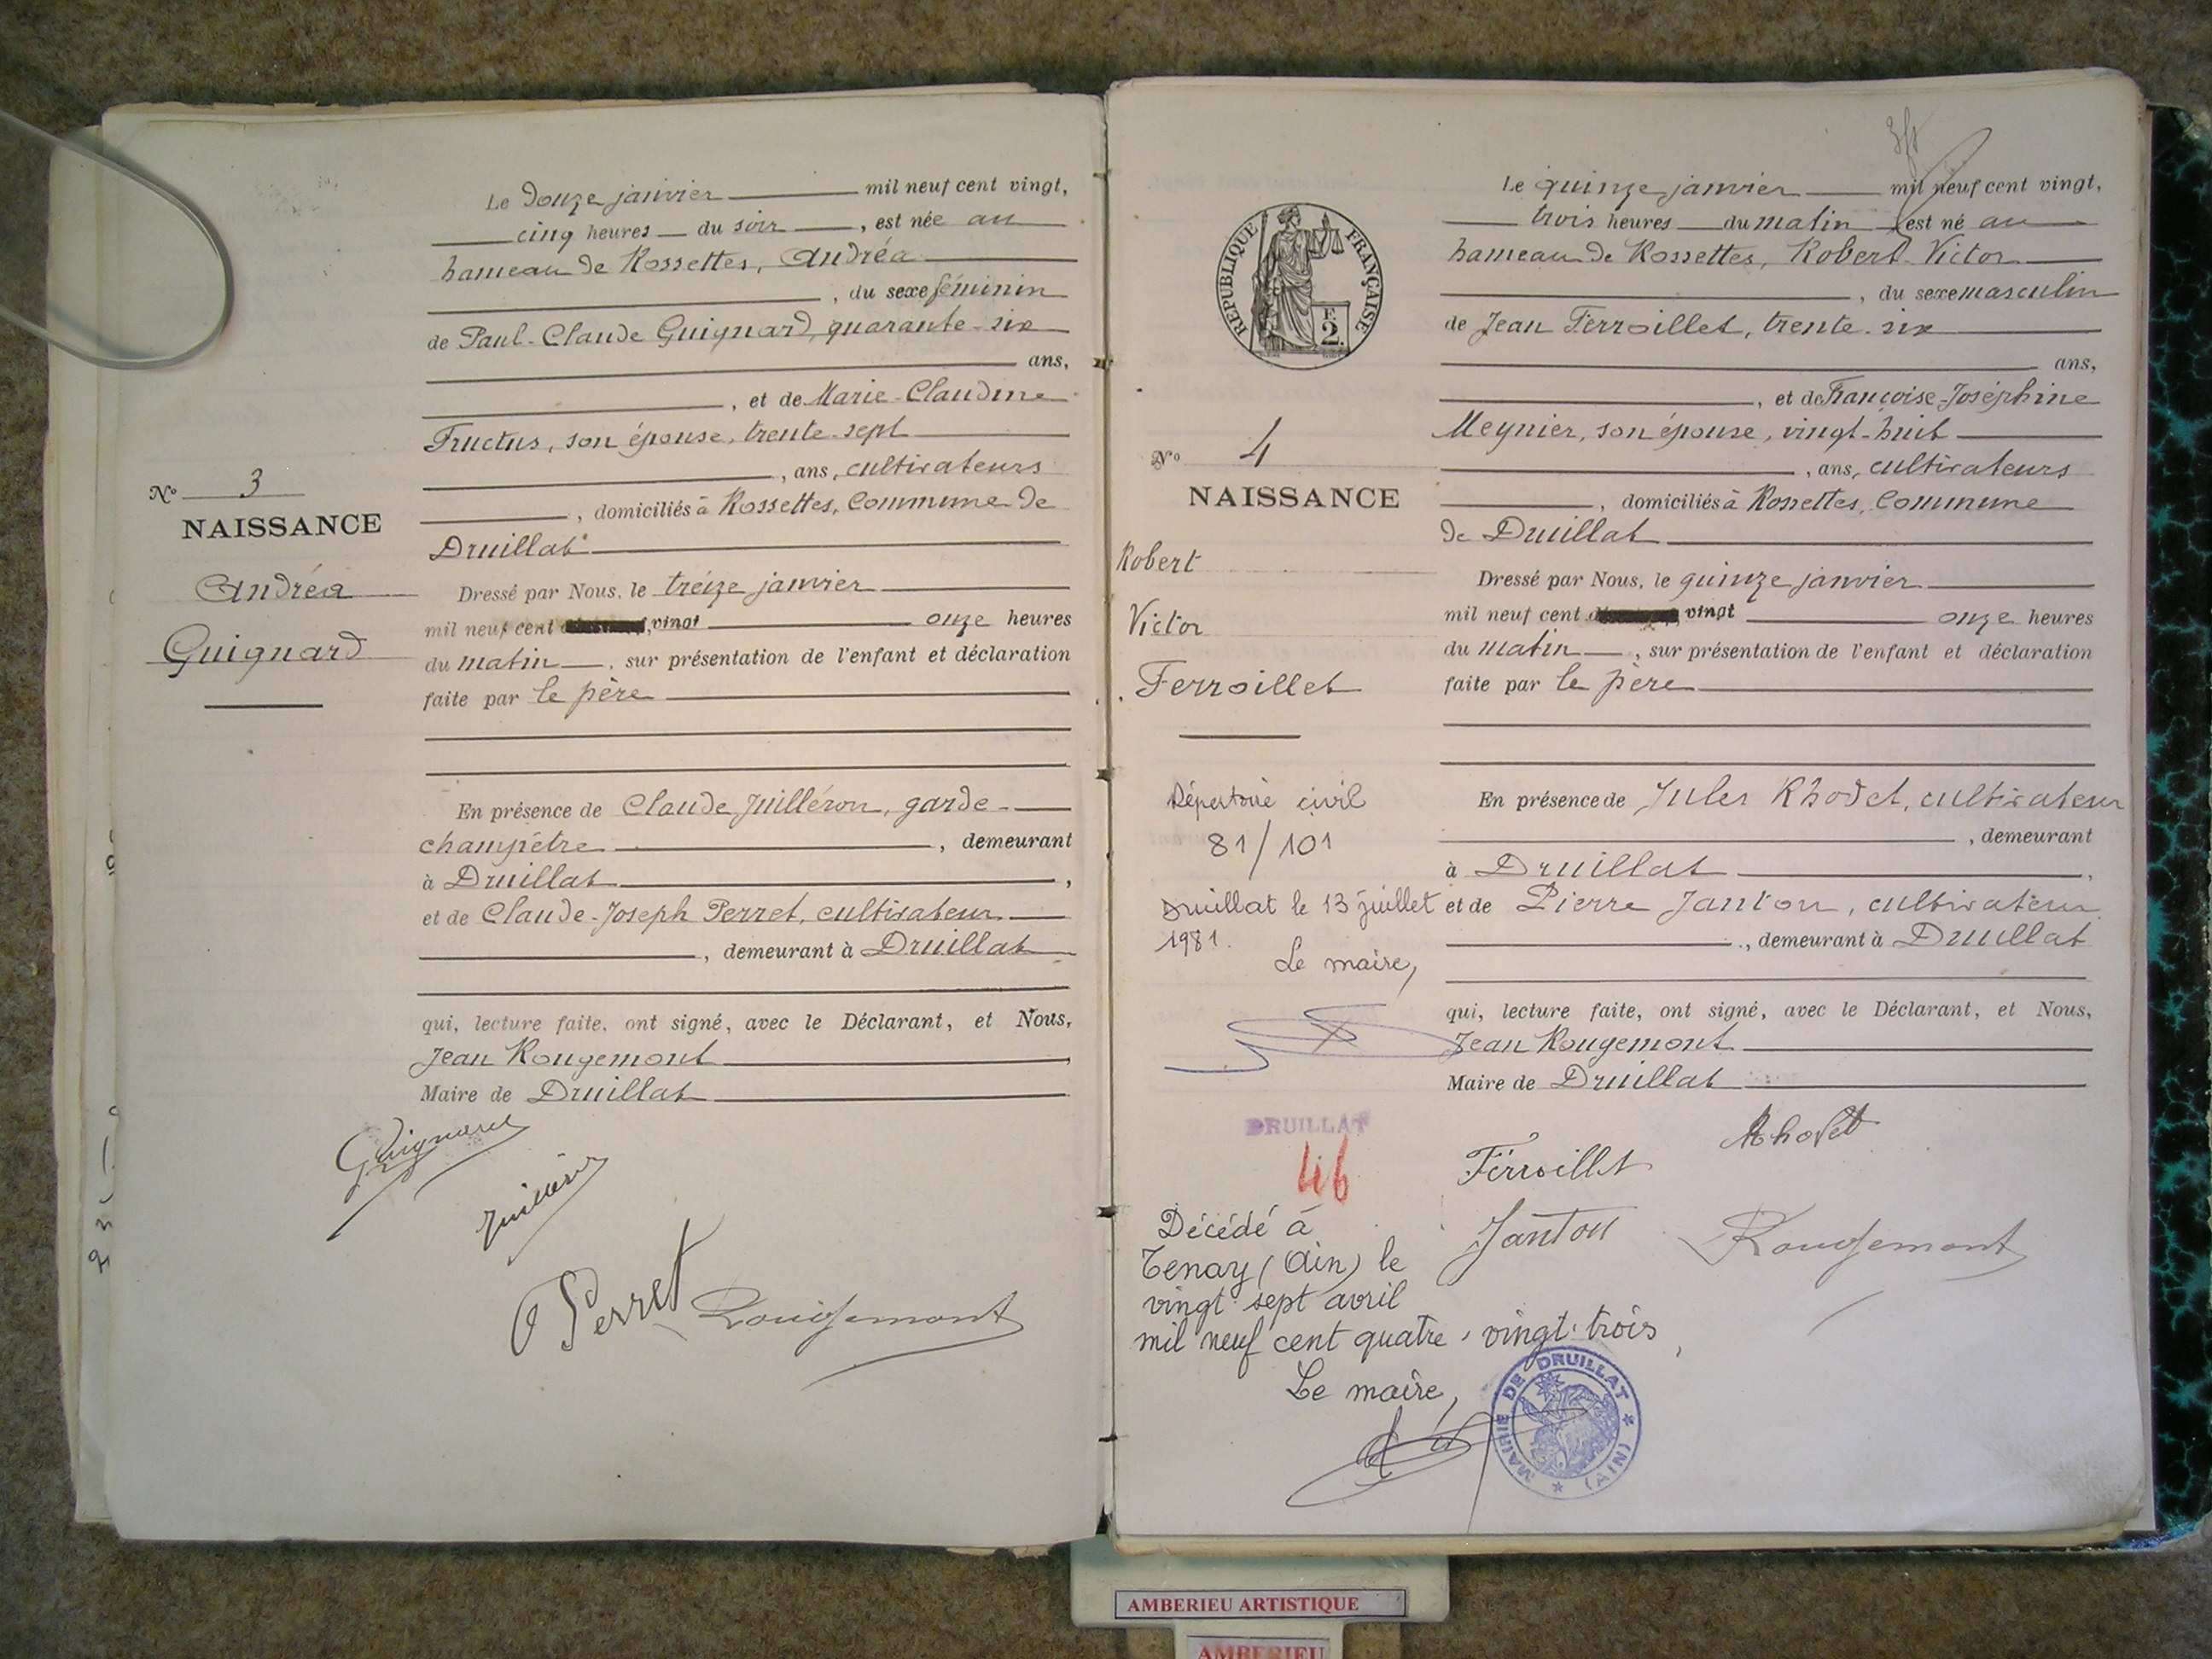 Le douze janvier mil neuf cent vingt,
cinq heures du soir, est née au
hameau de Rossettes, Andréa
, du sexe féminin
de Paul-Claude Guignard, quarante-six
ans,
, et de Marie-Claudine
Fructus, son épouse, trente-sept
, ans, cultivateurs
, domiciliés à Rossettes, Commune de
Druillat
N° 3
NAISSANCE
Andréa
Guignard
Dressé par Nous, le treize janvier
mil neuf cent vingt onze heures
du matin, sur présentation de l'enfant et déclaration
faite par le père
En présence de Claude Juilléron, garde-
champêtre, demeurant
à Druillat,
et de Claude-Joseph Perret, cultivateur
, demeurant à Druillat
qui, lecture faite, ont signé, avec le Déclarant, et Nous,
Jean Rougemont,
Maire de Druillat
Guignard
Perret
Rougemont
Le quinze janvier mil neuf cent vingt,
trois heures du matin est né au
hameau de Rossettes, Robert Victor
, du sexe masculin
de Jean Ferroillet, trente-six
ans,
, et de Françoise-Joséphine
Meynier, son épouse, vingt-huit
, ans, cultivateurs
, domiciliés à Rossettes, Commune
de Druillat
REPUBLIQUE FRANÇAISE
F.
2.
N° 4
NAISSANCE
Robert
Victor
Ferroillet
Dressé par Nous, le quinze janvier
mil neuf cent vingt onze heures
du matin, sur présentation de l'enfant et déclaration
faite par le père
En présence de Jules Rhodet, cultivateur
, demeurant
à Druillat,
et de Pierre Janton, cultivateur
, demeurant à Druillat
qui, lecture faite, ont signé, avec le Déclarant, et Nous,
Jean Rougemont
Maire de Druillat
Répertoire civil
81/101
Druillat le 13 juillet
1981.
Le maire,
DRUILLAT
46
Rhodet
Ferroillet
Janton
Rougemont
Décédé à
Tenay (Ain) le
vingt-sept avril
mil neuf cent quatre-vingt-trois,
Le maire,
MAIRIE DE DRUILLAT
(AIN)
AMBERIEU ARTISTIQUE
AMBERIEU